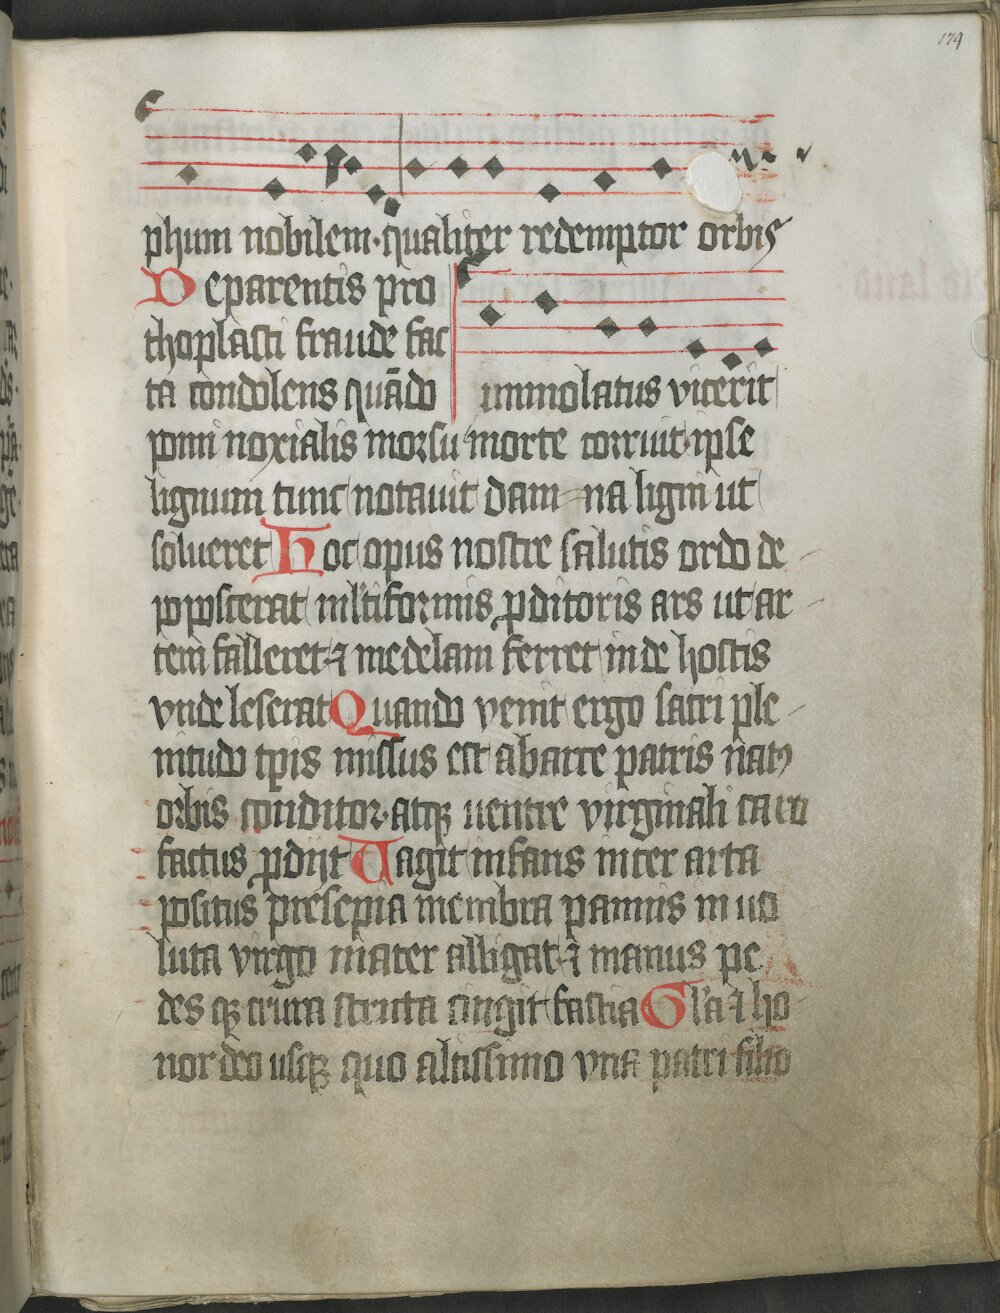 179
phum nobilem·qualiter redemptor orbis
Deparentis pro
thoplasti fraude fac
ta condolens quādo immolatus vicerit
pomi noxialis morsu morte corruit·ipse
lignum tunc notavit dam na ligni ut
solueret Hoc opus nostre salutis ordo de
poposcerat mlˀtiformis ꝓditoris ars ut ar
tem falleret ⁊ medelam ferret inde hostis
vnde leserat Quando venit ergo sacri ple
nitudo tpis missus est abarce patris natꝰ
orbis conditor·atqꝫ uentre virginali caro
factus ꝓdijt Uagit infans inter arta
positus presepia membra pannis in uo
luta virgo mater alligat ⁊ manus pe
des qꝫ crura stricta cingit fascia Gl'a ⁊ ho
nor deo usqꝫ quo altissimo vna patri filio